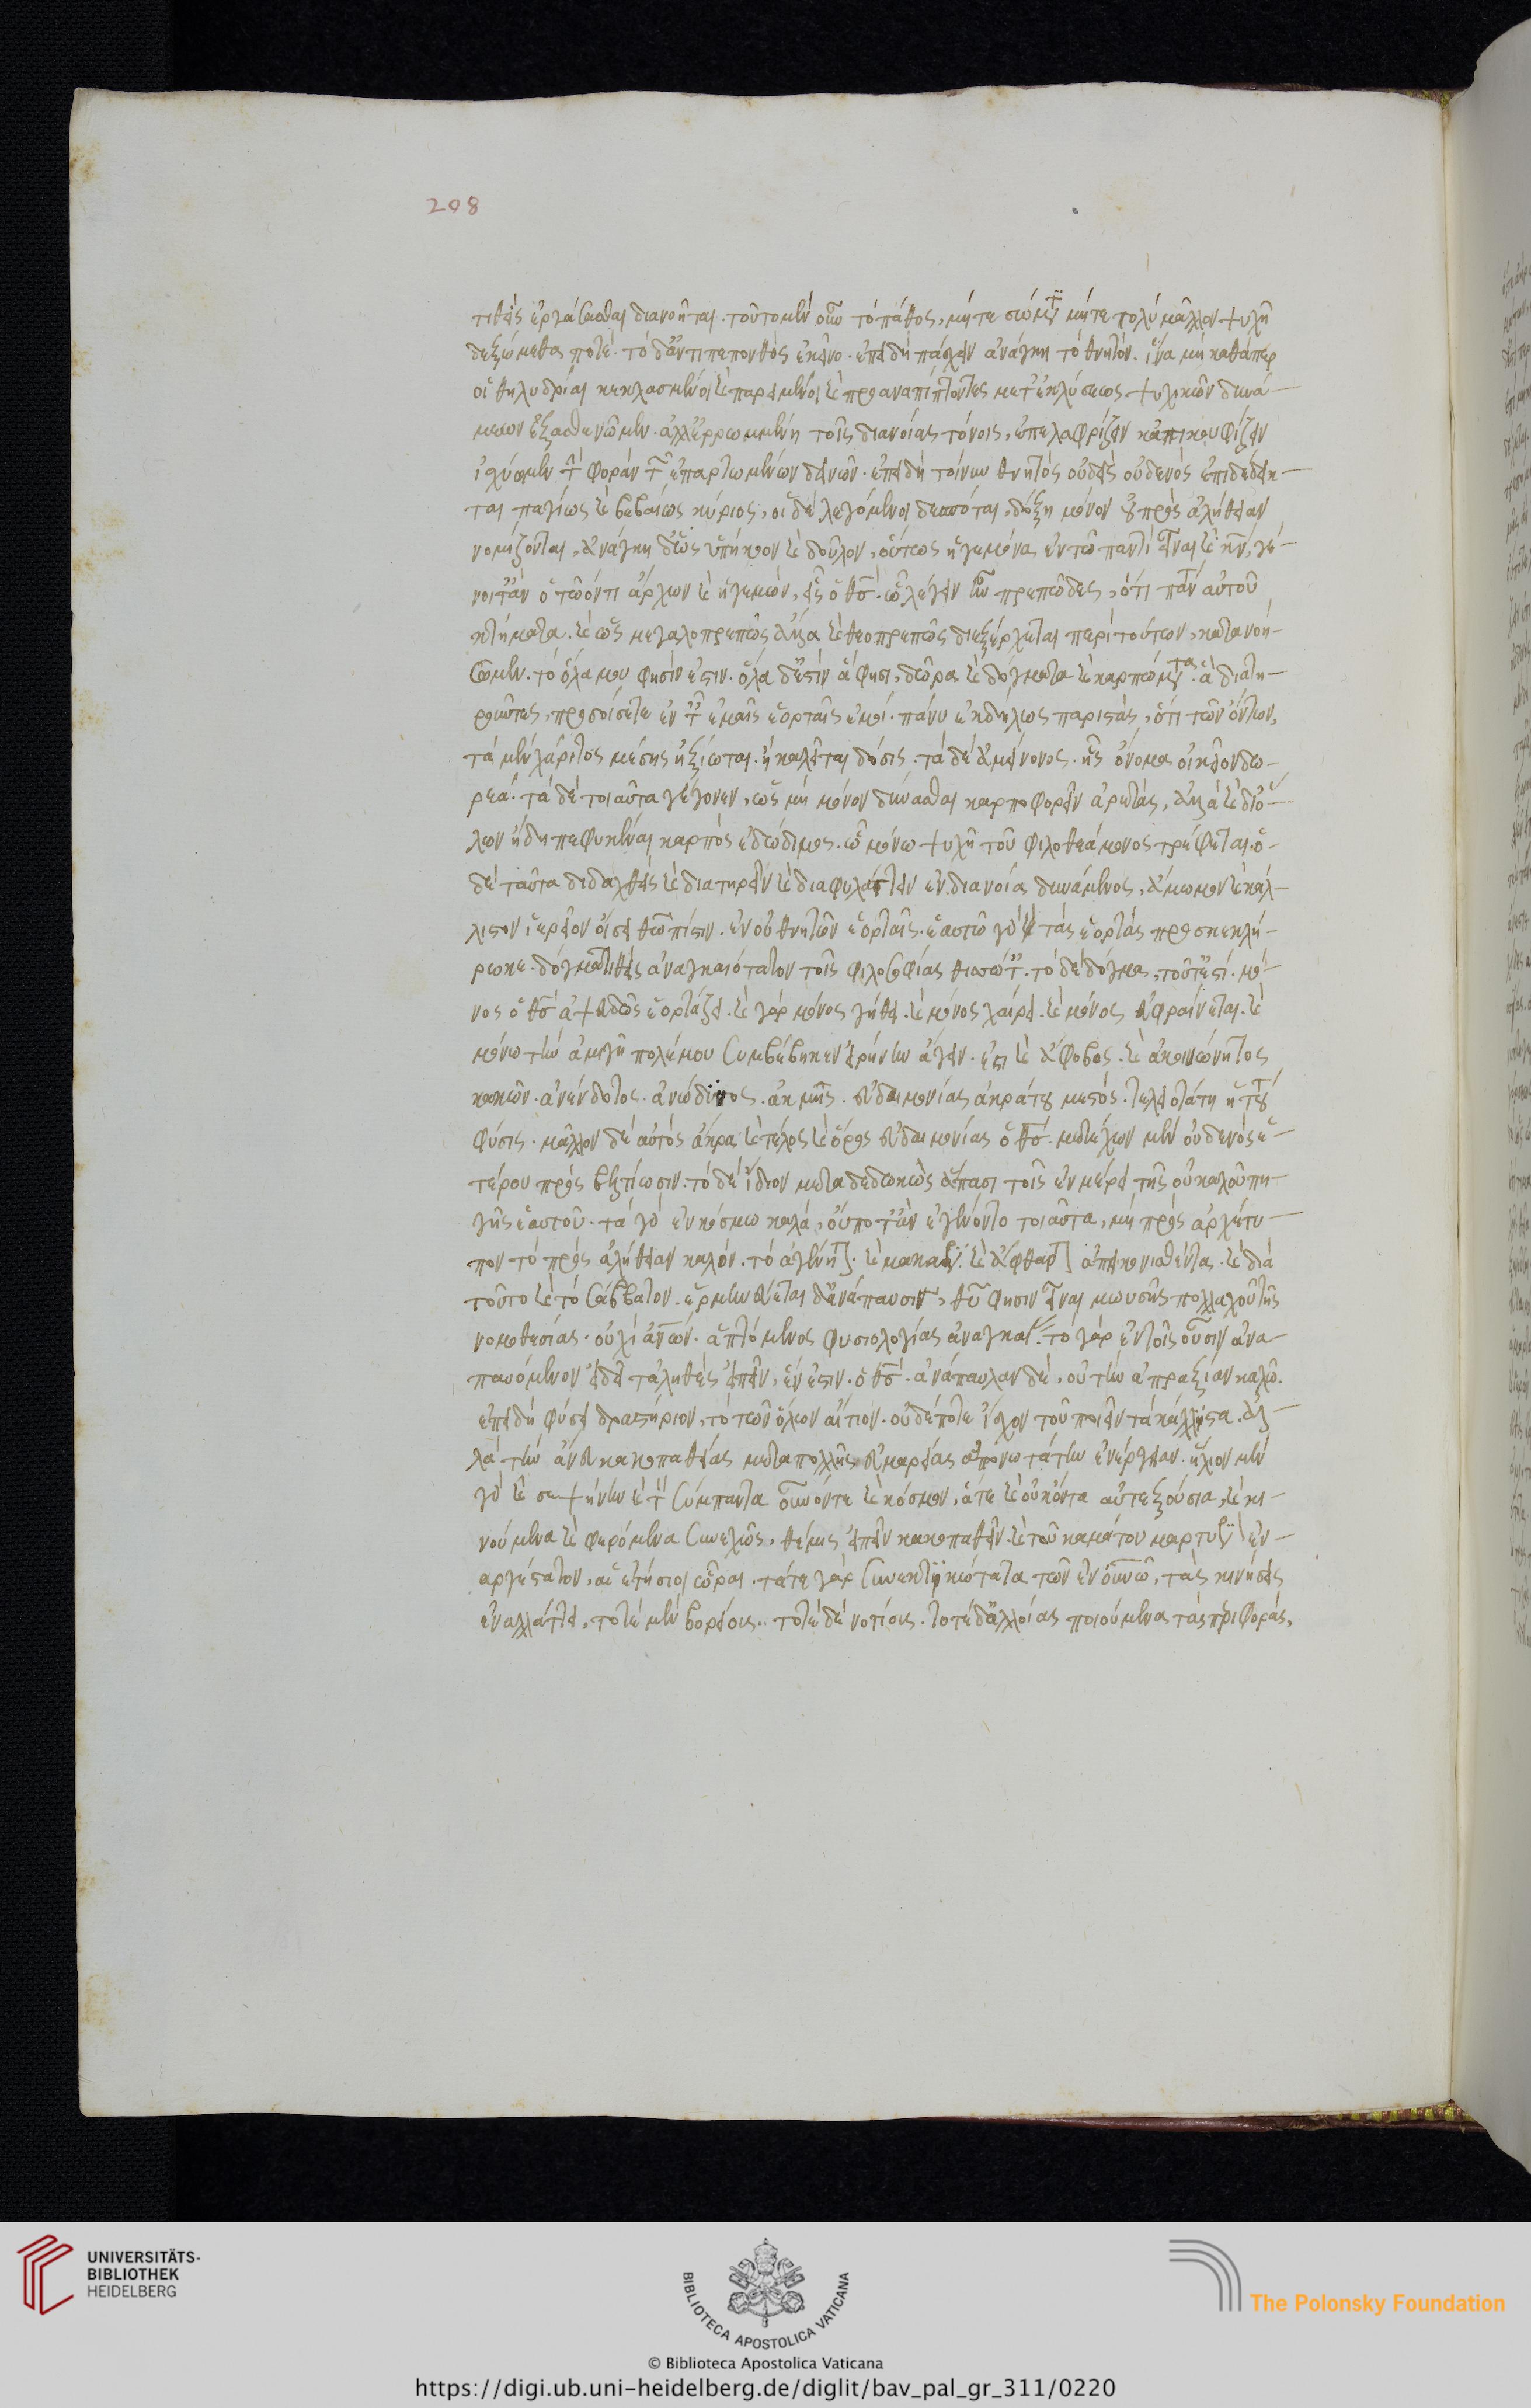 208
τιθεὶς ἐργάσασθαι διανοῆται. τοῦτο μὲν οὖν τὸ πάθος, μήτε σώματι μήτε πολὺ μᾶλλον ψυχῇ
δεξώμεθα ποτέ. τὸ δ' ἀντιπεπονθὸς ἐκεῖνο. ἐπειδὴ πάσχειν ἀνάγκη τὸ θνητόν. ἵνα μὴ καθάπερ
οἱ θηλυδρίαι κεκλασμένοι καὶ παρειμένοι καὶ προαναπίπτοντες μετ' ἐκλύσεως ψυχικῶν δυνά-
μεων ἐξασθενῶμεν. ἀλλ' ἐρρωμμένη τοῖς διανοίας τόνοις, ἐπελαφρίζειν κἀπικουφίζειν
ἰσχύωμεν τὴν φορὰν τῶν ἐπαρτωμένων δεινῶν. ἐπειδὴ τοίνυν θνητὸς οὐδεὶς οὐδενὸς ἐπιδέδεικ-
ται παγίως καὶ βεβαίως κύριος, οἱ δὲ λεγόμενοι δεσπόται, δόξῃ μόνον οὐ πρὸς ἀλήθειαν
νομίζονται, ἀνάγκη δ' ὡς ὑπήκοον καὶ δοῦλον, οὕτως ἡγεμόνα ἐν τῷ παντὶ εἶναι καὶ κύριον, γέ-
νοιτ' ἂν ὁ τῷ ὄντι ἄρχων καὶ ἡγεμών, εἷς ὁ θεός. ᾧ λέγειν ἦν πρεπῶδες, ὅτι πάντα αὐτοῦ
κτήματα. καὶ ὡς μεγαλοπρεπῶς ἅμα καὶ θεοπρεπῶς διεξέρχεται περὶ τούτων, κατανοή-
σωμεν. τὸ ὅλα μου φησὶν ἐστιν. ὅλα δ' ἐστὶν ἅ φησι, δῶρα καὶ δόγματα καὶ καρπώματα. ἃ διατη-
ροῦντες, προσοίσετε ἐν ταῖς ἐμαῖς ἑορταῖς ἐμοί. πάνυ ἐκδήλως παριστάς, ὅτι τῶν ὄντων,
τὰ μὲν χάριτος μέσης ἠξίωται. ἣ καλεῖται δόσις. τὰ δὲ ἀμείνονος. ἧς ὄνομα οἰκεῖον δω-
ρεά. τὰ δὲ τοιαῦτα γέγονεν, ὡς μὴ μόνον δύνασθαι καρποφορεῖν ἀρετάς, ἀλλὰ καὶ διό-
λων ἤδη πεφυκέναι καρπὸς ἐδώδιμος. ᾧ μόνῳ ψυχὴ τοῦ φιλοθεάμονος τρέφεται. ὁ-
δὲ ταῦτα διδαχθεὶς καὶ διατηρεῖν καὶ διαφυλάττειν ἐν διανοίᾳ δυνάμενος, ἄμωμον καὶ κάλ-
λιστον ἱερεῖον οἴσει θεῷ πίστιν. ἐν οὐ θνητῶν ἑορταῖς. ἑαυτῷ γὰρ καὶ τὰς ἑορτὰς προσκεκλή-
ρωκε. δόγμα τιθεὶς ἀναγκαιότατον τοῖς φιλοσοφίας θιασώταις. τὸ δὲ δόγμα, τοῦτ' ἐστί. μό-
νος ὁ θεὸς ἀψευδῶς ἑορτάζει. καὶ γὰρ μόνος γήθει. καὶ μόνος χαίρει. καὶ μόνος εὐφραίνεται. καὶ
μόνῳ τὴν ἀμιγῆ πολέμου συμβέβηκεν εἰρήνην ἄγειν. ἔτι καὶ ἄφοβος. καὶ ἀκοινώνητος
κακῶν. ἀνένδοτος. ἀνώδυνος. ἀκμής. εὐδαιμονίας ἀκράτου μεστός. τελειοτάτη ἡ τούτου
φύσις. μᾶλλον δὲ αὐτὸς ἄκρα καὶ τέλος καὶ ὅρος εὐδαιμονίας ὁ θεός. μετέχων μὲν οὐδενὸς ἑ-
τέρου πρὸς βελτίωσιν. τὸ δὲ ἴδιον μεταδεδωκὼς ἅπασι τοῖς ἐν μέρει τῆς οὐ καλοῦ πη-
γῆς ἑαυτοῦ. τὰ γὰρ ἐν κόσμῳ καλά, οὔποτ' ἂν ἐγένοντο τοιαῦτα, μὴ πρὸς ἀρχέτυ-
πον τὸ πρὸς ἀλήθειαν καλόν. τὸ ἀγένητον. καὶ μακάριον. καὶ ἄφθαρτον ἀπεικονισθέντα. καὶ διὰ
τοῦτο καὶ τὸ σάββατον. ἑρμηνεύεται δ' ἀνάπαυσιν, θεοῦ φησιν εἶναι μωυσῆς πολλαχοῦ τῆς
νομοθεσίας. οὐχὶ ἀνθρώπων. ἁπτόμενος φυσιολογίας ἀναγκαίας. τὸ γὰρ ἐν τοῖς οὖσιν ἀνα-
παυόμενον εἰ δεῖ τἀληθὲς εἰπεῖν, ἕν ἐστιν. ὁ θεός. ἀνάπαυλαν δέ, οὐ τὴν ἀπραξίαν καλῶ.
ἐπειδὴ φύσει δραστήριον, τὸ τῶν ὅλων αἴτιον. οὐδέποτε ἴσχον τοῦ ποιεῖν τὰ κάλλιστα. ἀλ-
λὰ τὴν ἄνευ κακοπαθείας μετὰ πολλῆς εὐμαρείας ἀπονωτάτην ἐνέργειαν. ἥλιον μὲν
γὰρ καὶ σελήνην καὶ τὸν σύμπαντα οὐρανόν τε καὶ κόσμον, ἅτε καὶ οὐκ ὄντα αὐτεξούσια, καὶ κι-
νούμενα καὶ φερόμενα συνεχῶς, θέμις εἰπεῖν κακοπαθεῖν. καὶ τοῦ καμάτου μαρτύριον ἐν-
αργέστατον, αἱ ἐτήσιοι ὧραι. τά τε γὰρ συνεκτικώτατα τῶν ἐν οὐρανῷ, τὰς κινήσεις
ἐναλλάττει, τοτὲ μὲν βορείους. τοτὲ δὲ νοτίους. τοτὲ δ' ἀλλοίας ποιούμενα τὰς περιφοράς,
UNIVERSITÄTS-
BIBLIOTHEK
HEIDELBERG
BIBLIOTECA APOSTOLICA VATICANA
The Polonsky Foundation
© Biblioteca Apostolica Vaticana
https://digi.ub.uni-heidelberg.de/diglit/bav_pal_gr_311/0220